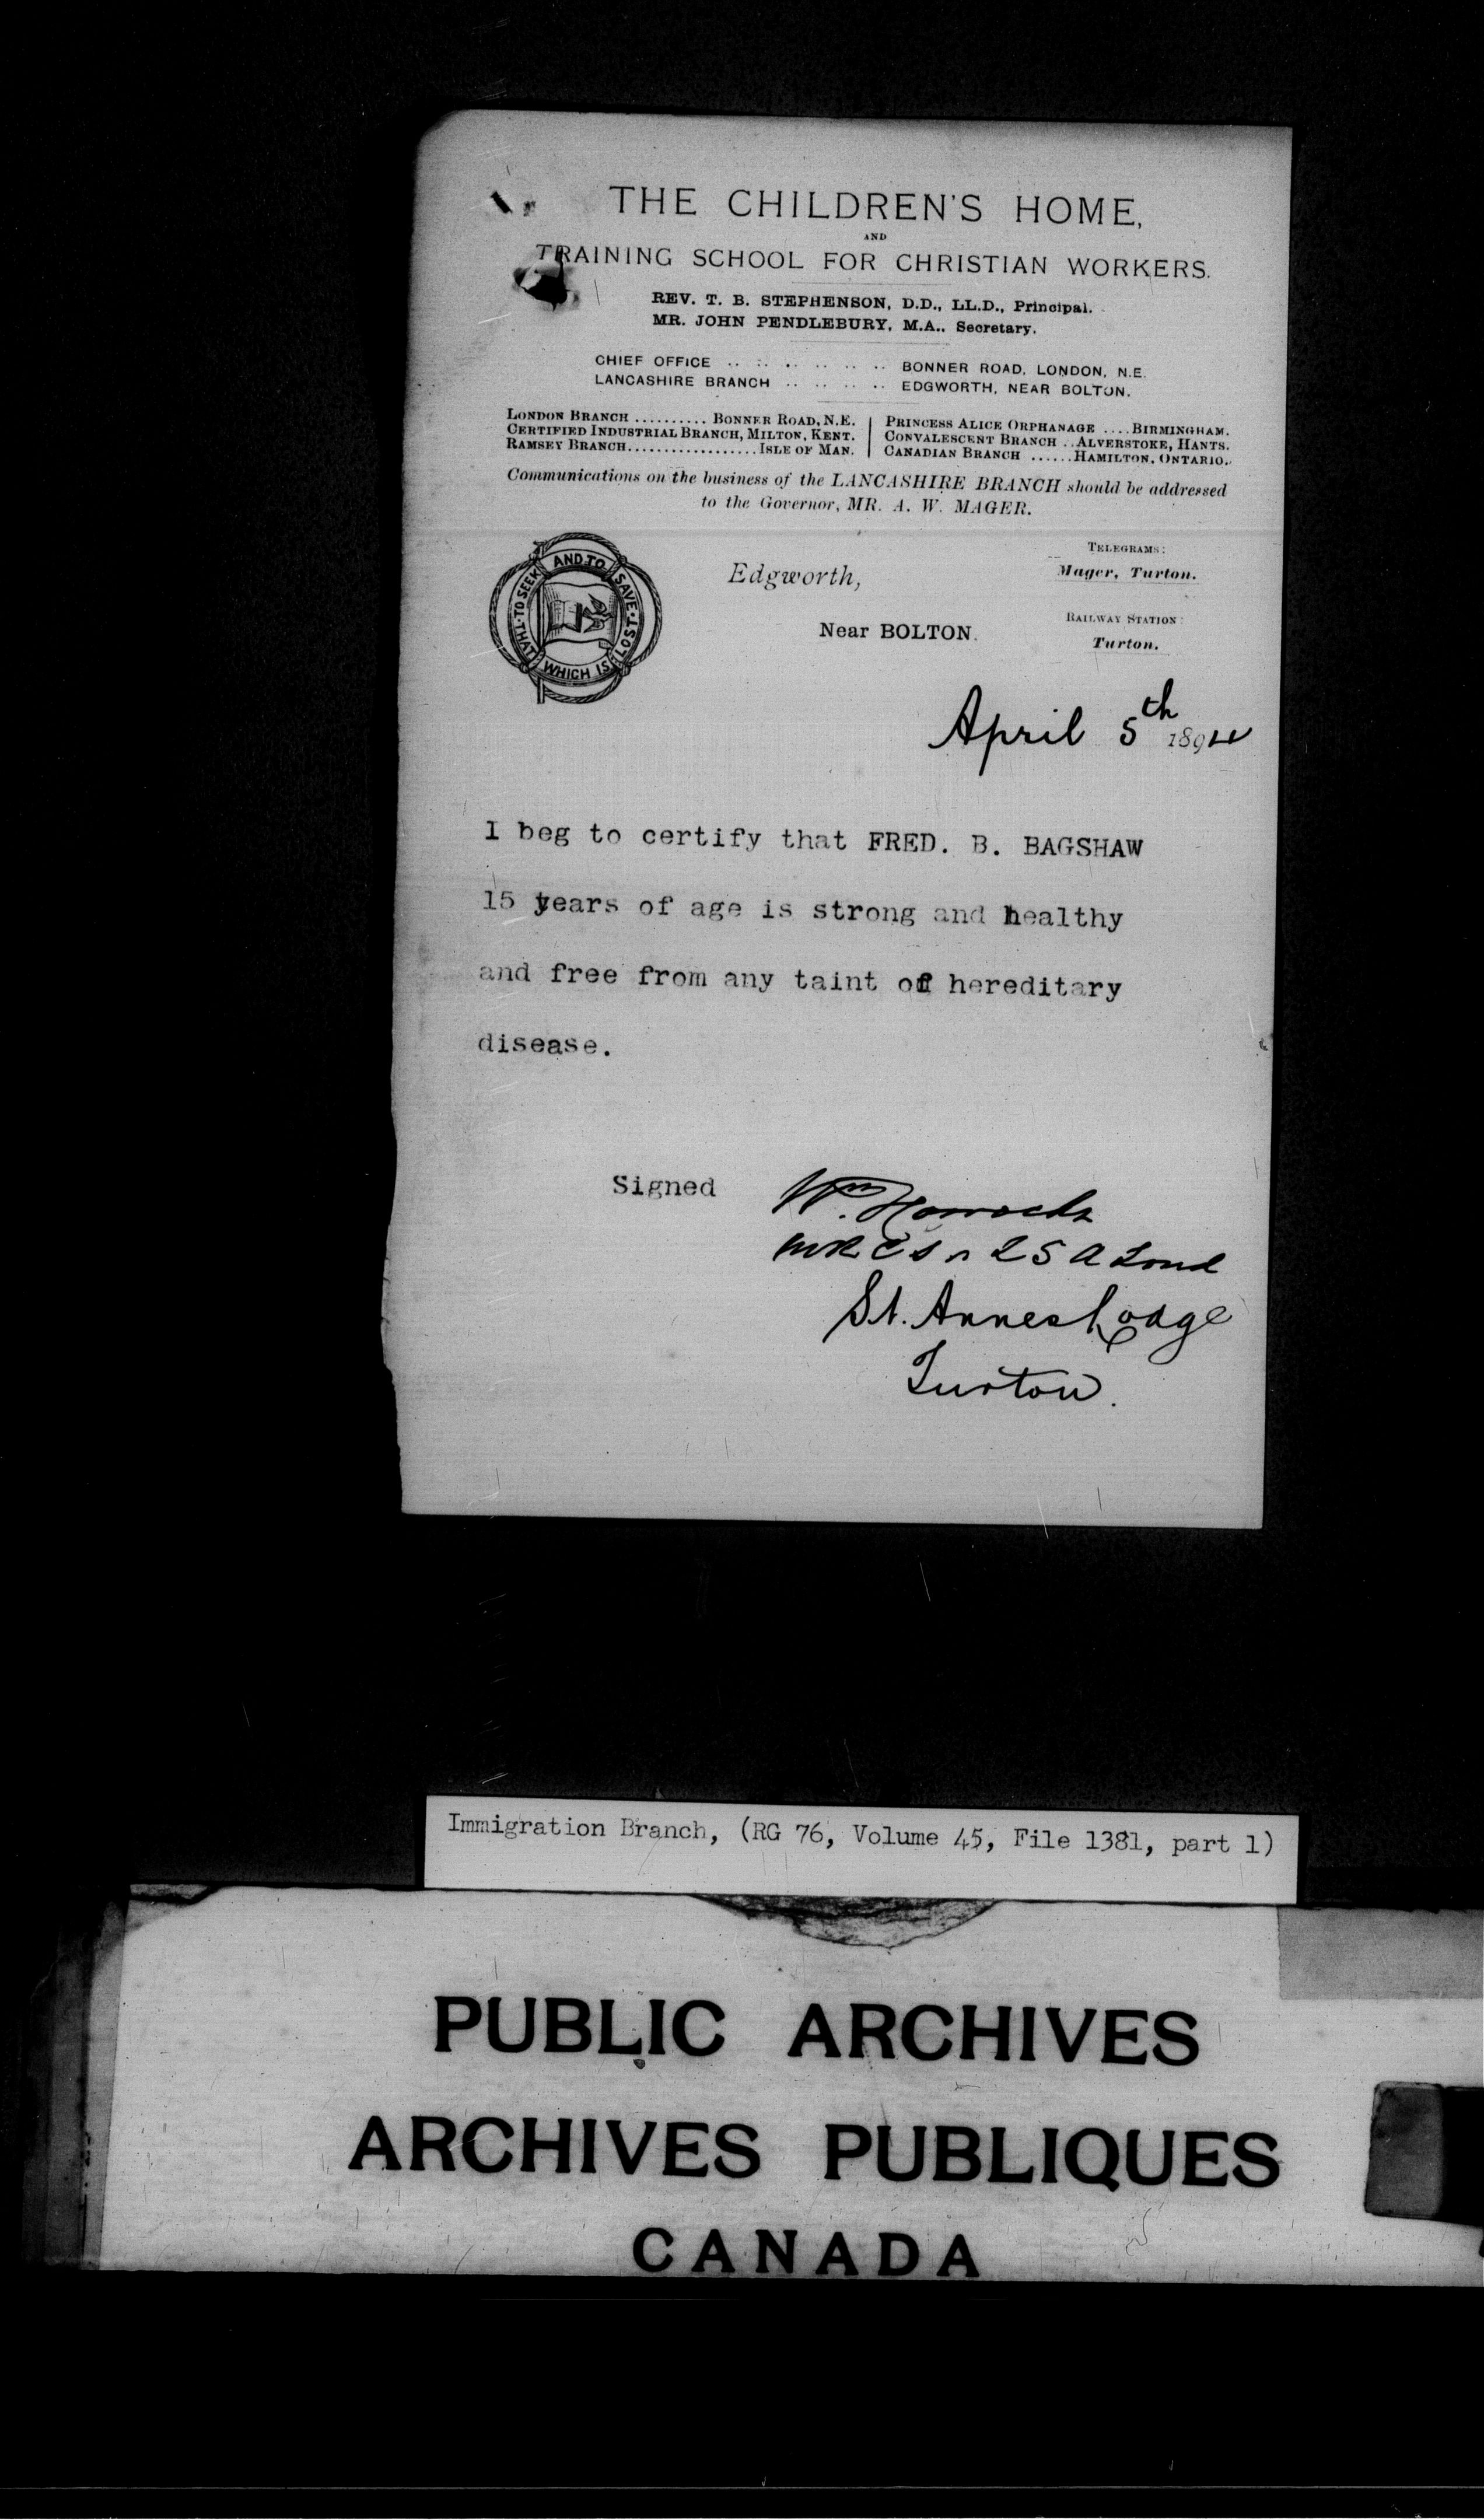 THE CHILDREN'S HOME,
AND
TRAINING SCHOOL FOR CHRISTIAN WORKERS.
REV. T. B. STEPHENSON, D.D., LL.D., Principal.
MR. JOHN PENDLEBURY, M.A., Secretary.
CHIEF OFFICE .. .. .. .. .. .. BONNER ROAD, LONDON, N.E.
LANCASHIRE BRANCH .. .. .. .. EDGWORTH, NEAR BOLTON.
LONDON BRANCH .......... BONNER ROAD, N.E.
CERTIFIED INDUSTRIAL BRANCH, MILTON, KENT.
RAMSEY BRANCH.................. ISLE OF MAN.
PRINCESS ALICE ORPHANAGE .... BIRMINGHAM.
CONVALESCENT BRANCH .. ALVERSTOKE, HANTS.
CANADIAN BRANCH ...... HAMILTON, ONTARIO.
Communications on the business of the LANCASHIRE BRANCH should be addressed
to the Governor, MR. A. W. MAGER.
TO SEEK AND TO SAVE THAT WHICH IS LOST
Edgworth,
Near BOLTON.
TELEGRAMS:
Mager, Turton.
RAILWAY STATION:
Turton.
April 5th 1894
I beg to certify that FRED. B. BAGSHAW
15 years of age is strong and healthy
and free from any taint of hereditary
disease.
Signed Wm. Horrocks
MRCS LSA Lond
St. Annes Lodge
Turton.
Immigration Branch, (RG 76, Volume 45, File 1381, part 1)
PUBLIC ARCHIVES
ARCHIVES PUBLIQUES
CANADA